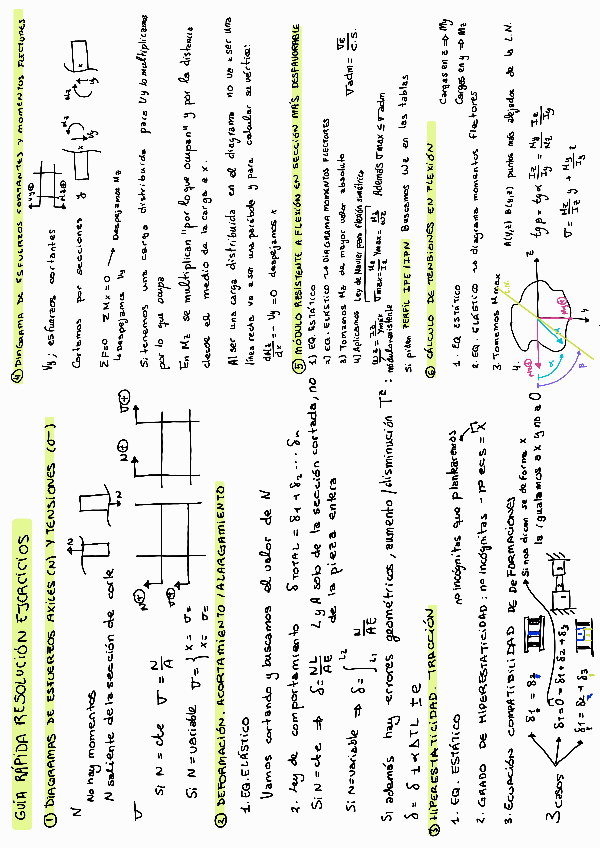 GUÍA RÁPIDA RESOLUCIÓN EJERCICIOS
① DIAGRAMAS DE ESFUERZOS AXILES (N) Y TENSIONES (σ)
N
No hay momentos
N saliente de la sección de corte
N
N
σ
Si N = cte σ = N/A
Si N = variable σ = { x = σ =
x = σ =
N⊕
σ⊕
N⊕
σ⊕
② DEFORMACIÓN. ACORTAMIENTO / ALARGAMIENTO
1. EQ. ELÁSTICO
Vamos cortando y buscamos el valor de N
2. Ley de comportamiento δTOTAL = δ1 + δ2 ... δn
Si N = cte ⇒ δ = NL/AE L y A solo de la sección cortada, no
de la pieza entera
Si N = variable ⇒ δ = ∫ L1 L2 N/AE
Si además hay errores geométricos, aumento / disminución Tª :
δ = δ ± α ΔTL ± e
③ HIPERESTATICIDAD TRACCIÓN
1. EQ. ESTÁTICO
no incógnitas que plantearemos
2. GRADO DE HIPERESTATICIDAD: nº incógnitas - nº ecs = x
3. ECUACIÓN COMPATIBILIDAD DE DEFORMACIONES
Si nos dicen se deforma x
la igualamos a x y no a 0
3 casos
δ1 = δ2
δT = 0 = δ1 + δ2 + δ3
δ1 = δ2 + δ3
④ DIAGRAMA DE ESFUERZOS CORTANTES Y MOMENTOS FLECTORES
Vy; esfuerzos cortantes
Vy⊕
Mz⊕
Cortamos por secciones y
Mz
Vy
Mz
Vy
ΣF=0 ΣMx=0 → Despejamos Mz
↳ Despejamos Vy
Si tenemos una carga distribuida para Vy la multiplicamos
por lo que ocupa
En Mz se multiplican "por lo que ocupan" y por la distancia
desde el medio de la carga a x.
Al ser una carga distribuida en el diagrama no va a ser una
línea recta va a ser una parábola y para calcular su vértice:
dMz/dx = -Vy = 0 despejamos x
⑤ MÓDULO RESISTENTE A FLEXIÓN EN SECCIÓN MÁS DESFAVORABLE
1) EQ. ESTÁTICO
2) EQ. ELÁSTICO → DIAGRAMA MOMENTOS FLECTORES
3) Tomamos Mz de mayor valor absoluto
σadm = σE/C.S.
4) Aplicamos Ley de Navier para flexión simétrica
Wz = Iz/Ymax
módulo resistente
σmax = Mz/Iz Ymax = Mz/Wz Además σmax ≤ σadm
Si piden PERFIL IPE/IPN Buscamos We en las tablas
⑥ CÁLCULO DE TENSIONES EN FLEXIÓN
1. EQ ESTÁTICO
Cargas en z ⇒ My
Cargas en y ⇒ Mz
2. EQ. ELÁSTICO → diagrama momentos flectores
3. Tomamos Mmax
4.
A(y,z) B(y,z) puntos más alejados de la L.N.
tg β = tg α Iz/Iy = My/Mz Iz/Iy
σ = Mz/Iz y + My/Iy z